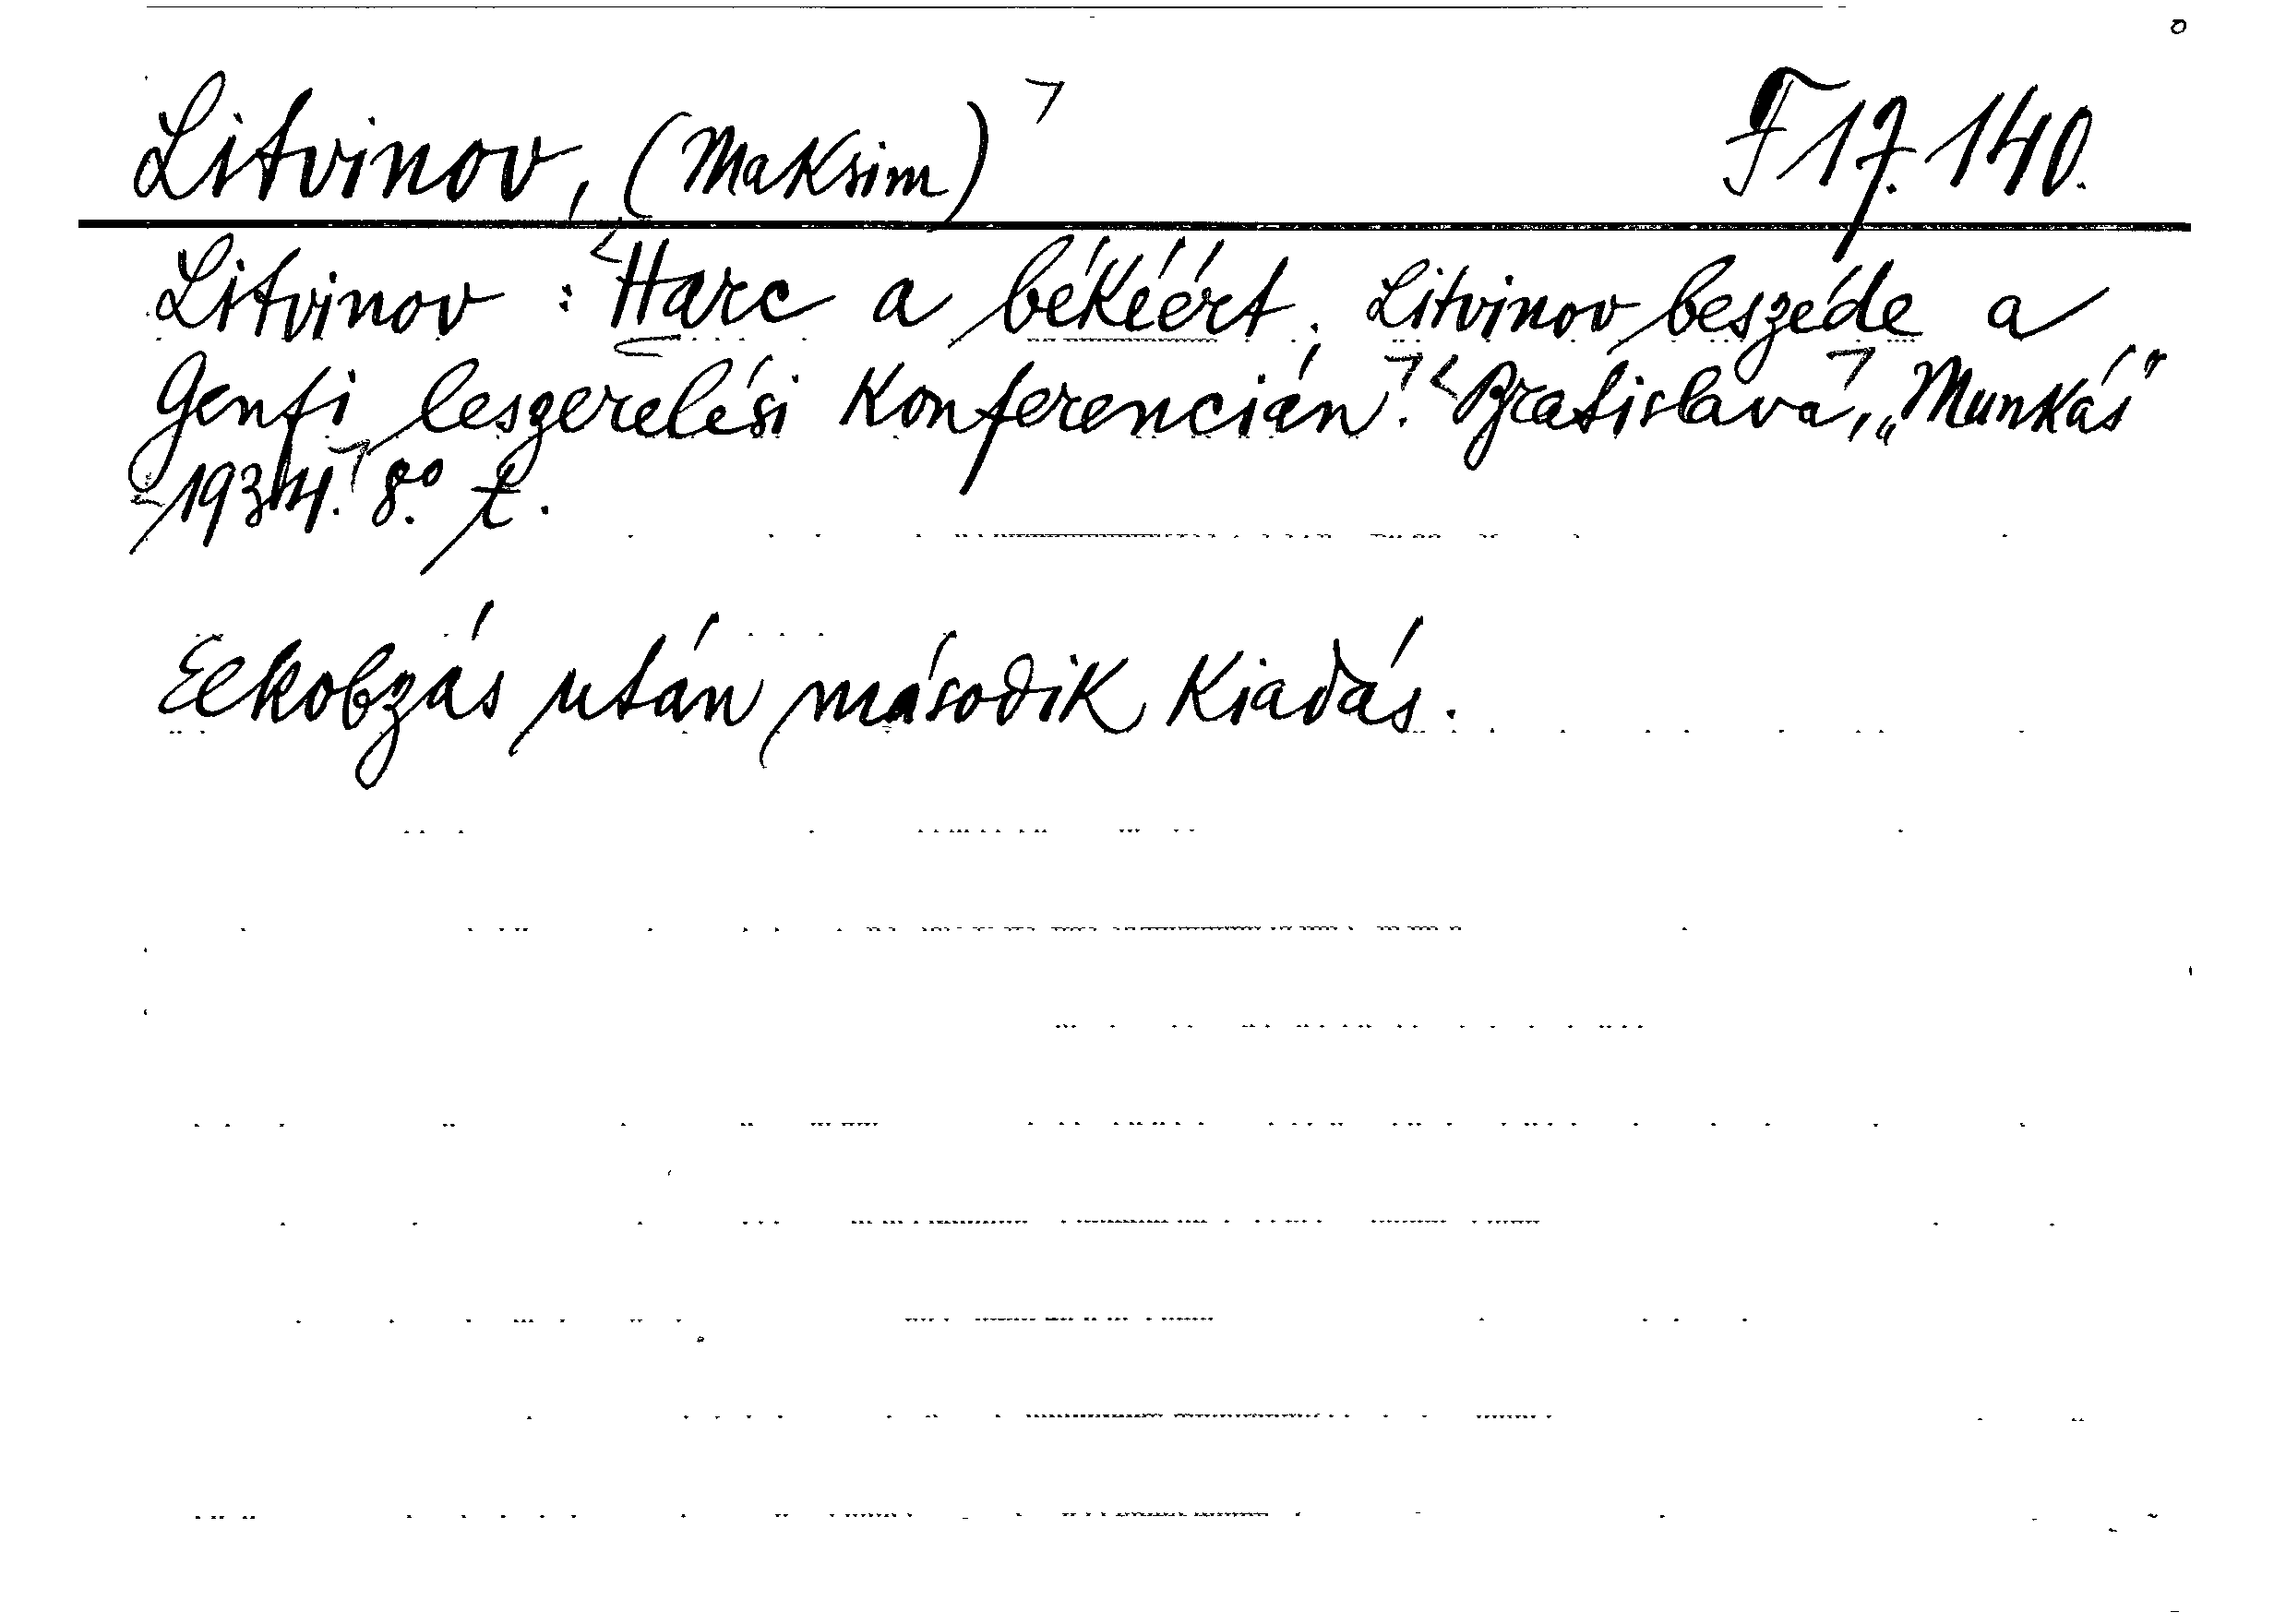 Litvinov, (Maksim) F 17.140.
Litvinov : Harc a békéért. Litvinov beszéde a
Genfi leszerelési Konferencián. Bratislava, „Munkás"
1934. 8.° t.
Elkobzás után második Kiadás.